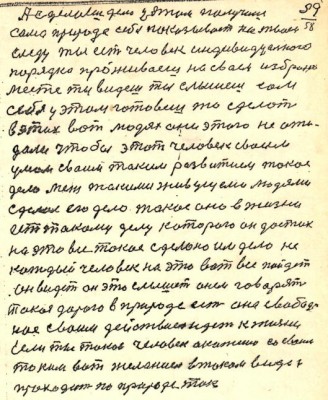 89
58
А сделав дело у этом получим
сама природе себя показывает на твоем
следу ты ест человек индивидуенного
порядка проживаем на своем избраном
месте ты видеш ты слышеш сам
себя у этом готовеш то сделат
в этих вот людях они этого не ожи
дали чтобы этот человек своим
умом своим таким развитием такое
дело меж такими живущеми людями
сделал его дело такое оно в жизни
ест такому делу которого он достих
на это все такое сделано им дело не
каждый человек на это вот все пойдет
он видет он это слышет они говорят
такая дорога в природе ест она свобод
ное своим действием идет к жизни
если ты такой человек окажеш со своим
таким вот желанием в таком виде
проходит по природе так